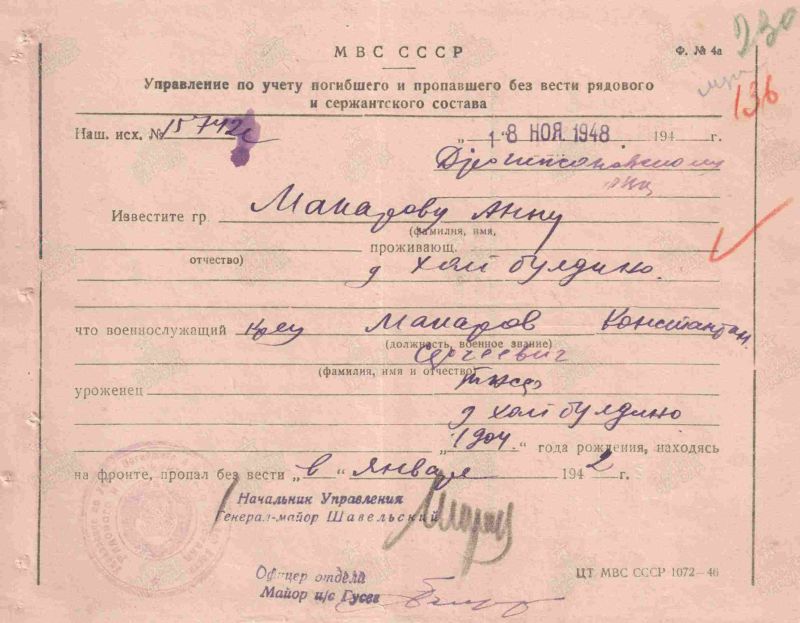 230
136
МВС СССР
Ф. № 4а
Управление по учету погибшего и пропавшего без вести рядового
и сержантского состава
Наш. исх. № 15742с
„18 НОЯ. 1948 194 г.
Известите гр. Макарову Анну
(фамилия, имя,
проживающ.
отчество)
д Холм булдино
что военнослужащий кр-ц Макаров Константин
(должность, военное звание)
Сергеевич
(фамилия, имя и отчество)
уроженец тж
д Холм булдино
„1904.“ года рождения, находясь
на фронте, пропал без вести „в“ январе 1942 г.
Начальник Управления
Генерал-майор Шавельский
Офицер отдела
Майор и/с Гусев
ЦТ МВС СССР 1072—46